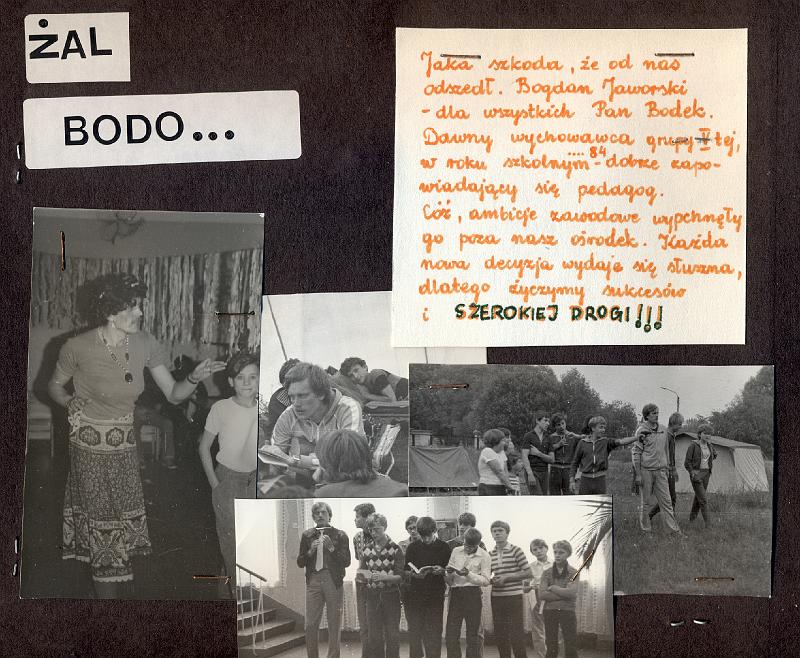 ŻAL
BODO...
Jaka szkoda, że od nas
odszedł. Bogdan Jaworski
- dla wszystkich Pan Bodek.
Dawny wychowawca grupy IV tej,
w roku szkolnym ....84 - dobrze zapo-
wiadający się pedagog.
Cóż, ambicje zawodowe wypchnęły
go poza nasz ośrodek. Każda
nowa decyzja wydaje się słuszna,
dlatego życzymy sukcesów
i SZEROKIEJ DROGI!!!